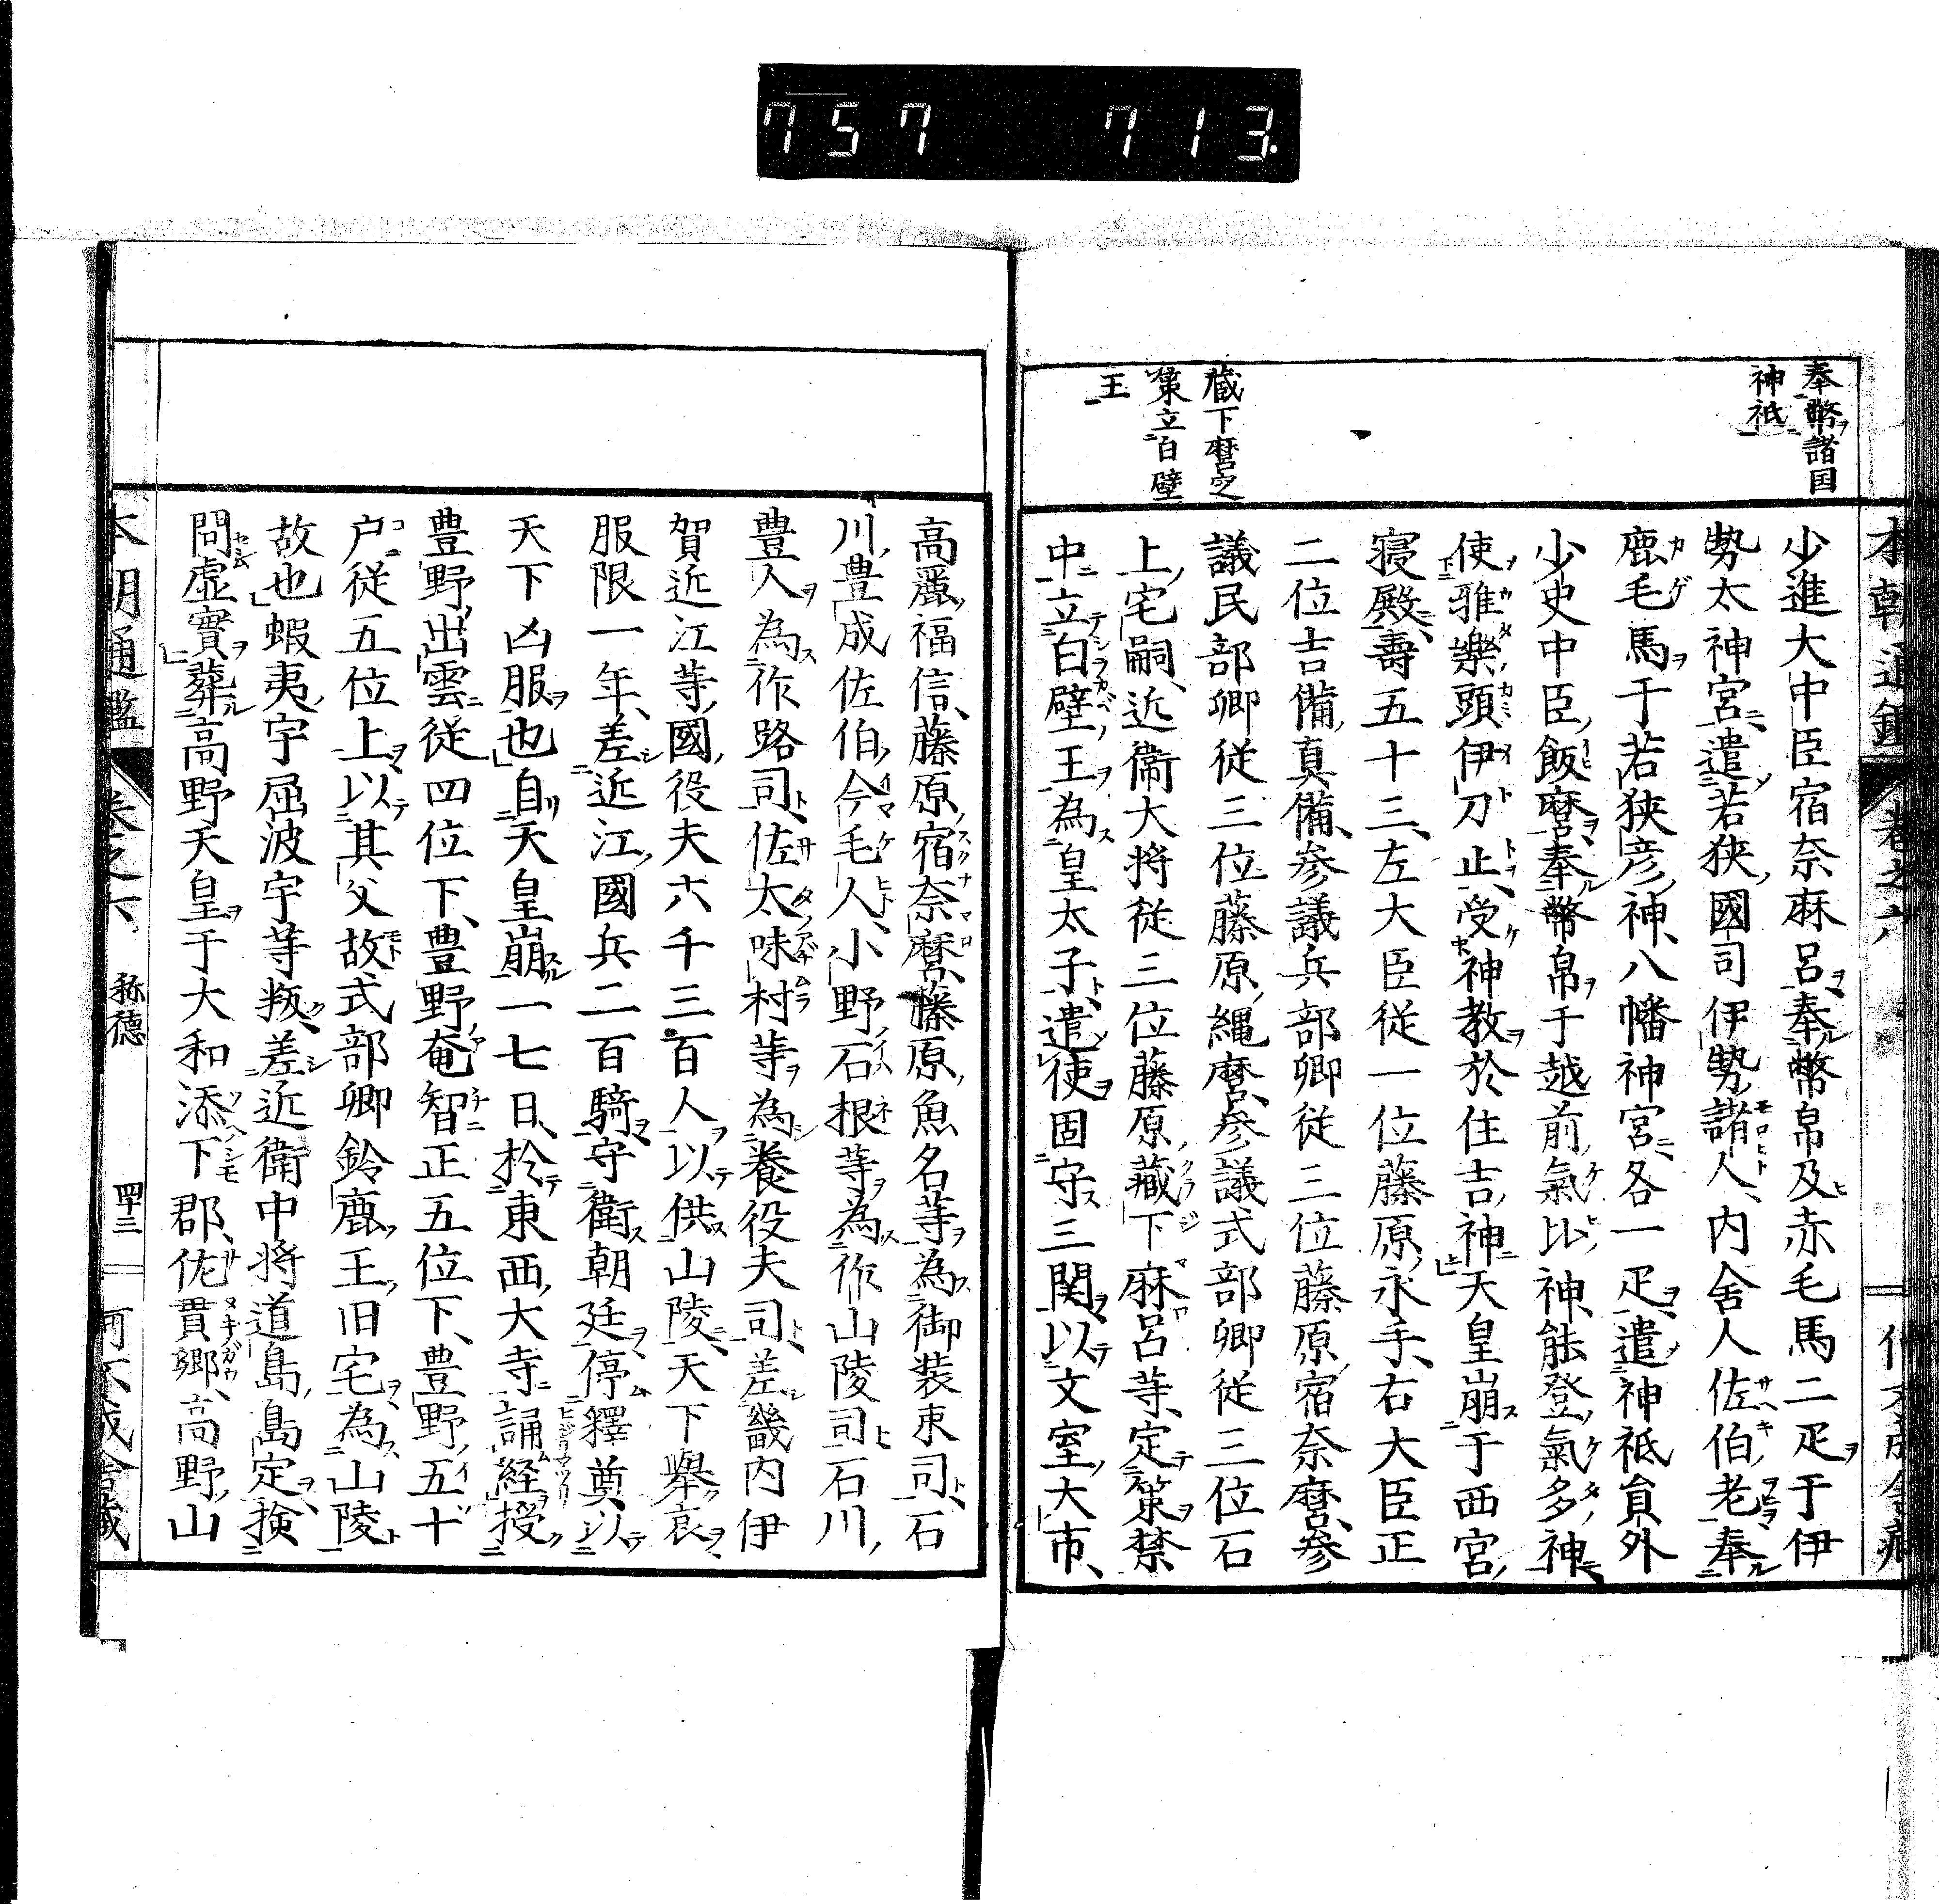 757 713
本朝通鑑 巻之六
奉幣諸国
神祇
蔵下麿定
策立白壁
王
少進大中臣宿奈麻呂奉幣帛及赤毛馬二疋于伊
勢太神宮遣若狹國司伊勢諸人内舍人佐伯老奉
鹿毛馬于若狹彦神八幡神宮各一疋遣神祇貟外
少史中臣飯麿奉幣帛于越前氣比神能登氣多神
使雅樂頭伊刀止受神教於住吉神天皇崩于西宮
寝殿壽五十三左大臣従一位藤原永手右大臣正
二位吉備真備參議兵部卿従三位藤原宿奈麿參
議民部卿従三位藤原縄麿參議式部卿従三位石
上宅嗣近衛大将従三位藤原蔵下麻呂等定策禁
中立白壁王為皇太子遣使固守三関以文室大市
高麗福信藤原宿奈麿藤原魚名等為御装束司石
川豊成佐伯今毛人小野石根等為作山陵司石川
豊人為作路司佐太味村等為養役夫司差畿内伊
賀近江等國役夫六千三百人以供山陵天下擧哀
服限一年差近江國兵二百騎守衛朝廷停釋奠以
天下凶服也自天皇崩一七日於東西大寺誦経授
豊野出雲従四位下豊野奄智正五位下豊野五十
戸従五位上以其父故式部卿鈴鹿王旧宅為山陵
故也蝦夷宇屈波宇等叛差近衛中将道島島定検
問虚實葬高野天皇于大和添下郡佐貫郷高野山
本朝通鑑 巻之六 称德 四十三